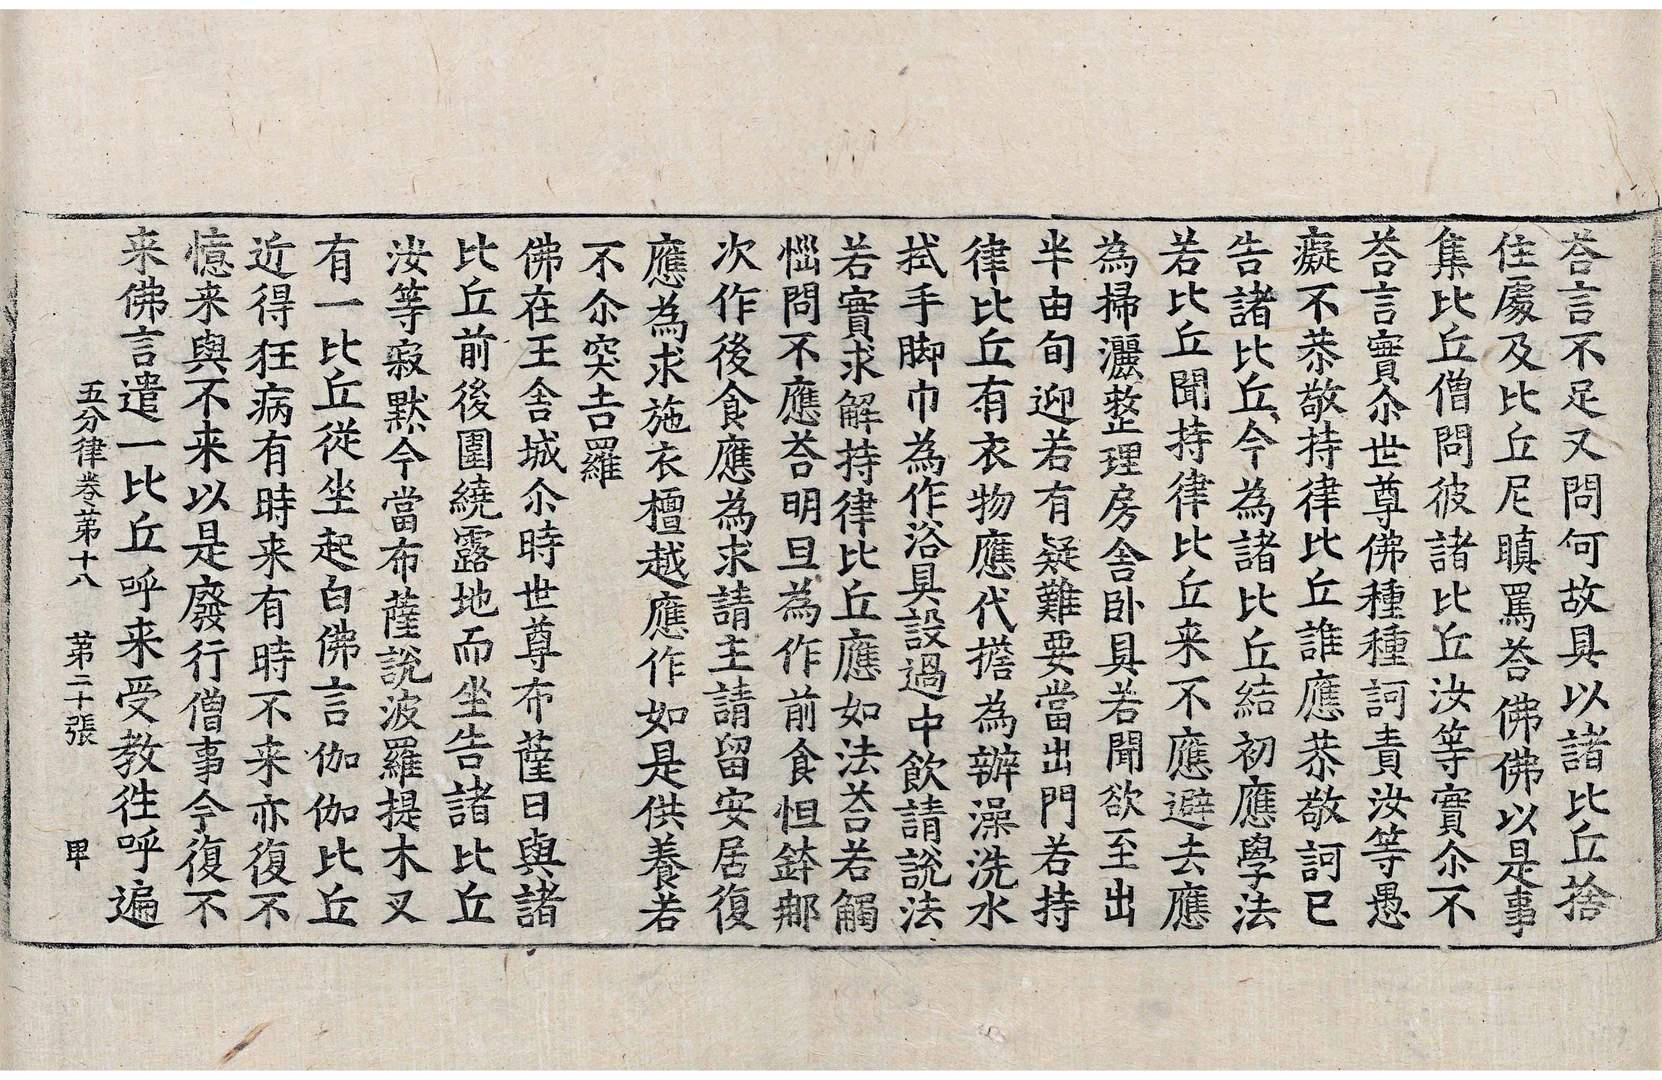 荅言不足又問何故具以諸比丘捨
住處及比丘尼瞋罵荅佛佛以是事
集比丘僧問彼諸比丘汝等實尒不
荅言實尒世尊佛種種訶責汝等愚
癡不恭敬持律比丘誰應恭敬訶已
告諸比丘今為諸比丘結初應學法
若比丘聞持律比丘来不應避去應
為掃灑整理房舍卧具若聞欲至出
半由旬迎若有疑難要當出門若持
律比丘有衣物應代擔為辦澡洗水
拭手脚巾為作浴具設過中飲請說法
若實求解持律比丘應如法荅若觸
惱問不應荅明旦為作前食怛鉢那
次作後食應為求請主請留安居復
應為求施衣檀越應作如是供養若
不尒突吉羅
佛在王舍城尒時世尊布薩日與諸
比丘前後圍繞露地而坐告諸比丘
汝等寂默今當布薩說波羅提木叉
有一比丘從坐起白佛言伽伽比丘
近得狂病有時来有時不来亦復不
憶来與不来以是廢行僧事今復不
来佛言遣一比丘呼来受教徃呼遍
五分律卷第十八 第二十張 甲